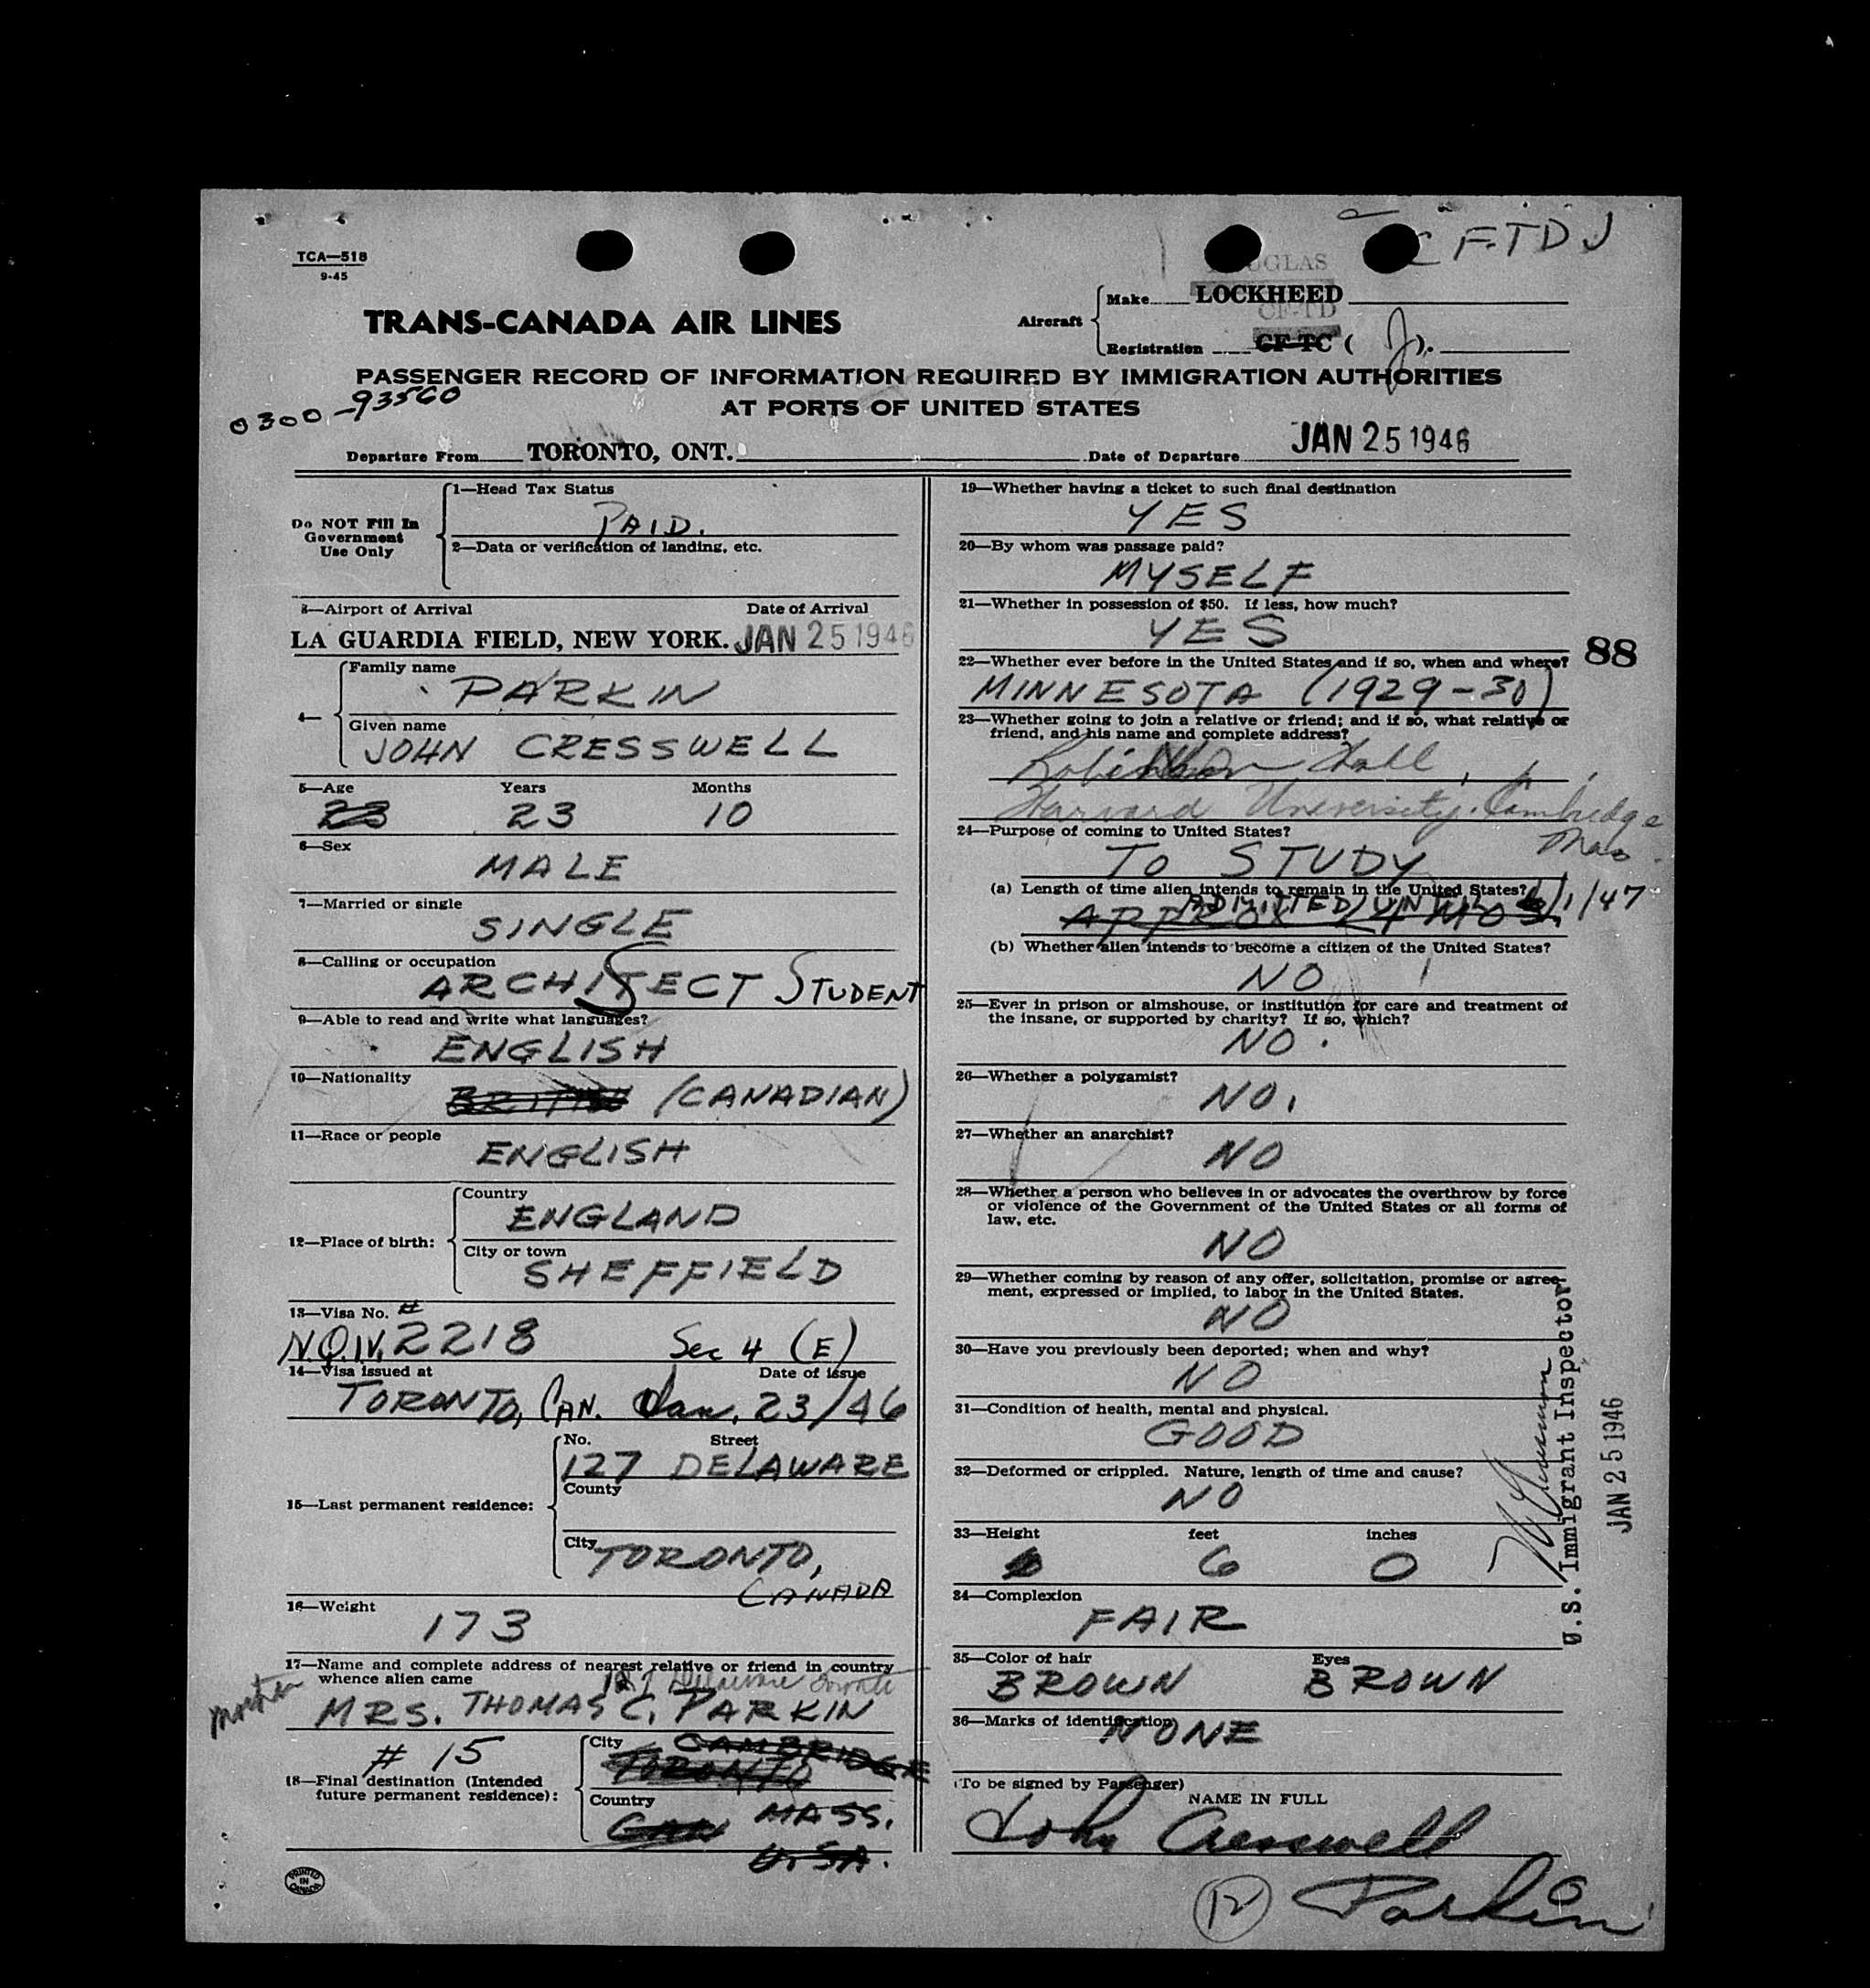 C F-TDJ
TCA—518
9-45
DOUGLAS
Make LOCKHEED
CF-TD
Aircraft
Registration CF-TC ( J ).
TRANS-CANADA AIR LINES
PASSENGER RECORD OF INFORMATION REQUIRED BY IMMIGRATION AUTHORITIES
AT PORTS OF UNITED STATES
0300-93560
Departure From TORONTO, ONT. Date of Departure JAN 25 1946
Do NOT Fill In
Government
Use Only
1—Head Tax Status
PAID.
2—Data or verification of landing, etc.
3—Airport of Arrival Date of Arrival
LA GUARDIA FIELD, NEW YORK. JAN 25 1946
4—
Family name
PARKIN
Given name
JOHN CRESSWELL
5—Age Years Months
23 23 10
6—Sex
MALE
7—Married or single
SINGLE
8—Calling or occupation
ARCHITECT STUDENT
9—Able to read and write what languages?
ENGLISH
10—Nationality
BRITISH (CANADIAN)
11—Race or people
ENGLISH
12—Place of birth:
Country
ENGLAND
City or town
SHEFFIELD
13—Visa No. #
N.Q.I.V. 2218 Sec 4 (E)
14—Visa issued at Date of issue
TORONTO, CAN. Jan. 23/46
15—Last permanent residence:
No. Street
127 DELAWARE
County
City
TORONTO,
CANADA
16—Weight
173
17—Name and complete address of nearest relative or friend in country
whence alien came
127 Delaware Toronto
mother
MRS. THOMAS C. PARKIN
# 15
18—Final destination (Intended
future permanent residence):
City CAMBRIDGE
TORONTO
Country
CAN MASS.
U.S.A.
PRINTED
IN
CANADA
19—Whether having a ticket to such final destination
YES
20—By whom was passage paid?
MYSELF
21—Whether in possession of $50. If less, how much?
YES
88
22—Whether ever before in the United States and if so, when and where?
MINNESOTA (1929-30)
23—Whether going to join a relative or friend; and if so, what relative or
friend, and his name and complete address?
Robinson Hall,
Harvard University, Cambridge
Mass.
24—Purpose of coming to United States?
TO STUDY
(a) Length of time alien intends to remain in the United States?
ADMITTED UNTIL 6/1/47
APPROX 24 MOS.
(b) Whether alien intends to become a citizen of the United States?
NO
25—Ever in prison or almshouse, or institution for care and treatment of
the insane, or supported by charity? If so, which?
NO.
26—Whether a polygamist?
NO.
27—Whether an anarchist?
NO
28—Whether a person who believes in or advocates the overthrow by force
or violence of the Government of the United States or all forms of
law, etc.
NO
29—Whether coming by reason of any offer, solicitation, promise or agree-
ment, expressed or implied, to labor in the United States.
NO
30—Have you previously been deported; when and why?
NO
31—Condition of health, mental and physical.
GOOD
32—Deformed or crippled. Nature, length of time and cause?
NO
33—Height feet inches
6 0
34—Complexion
FAIR
35—Color of hair Eyes
BROWN BROWN
36—Marks of identification
NONE
U.S. Immigrant Inspector
JAN 25 1946
(To be signed by Passenger)
NAME IN FULL
John Cresswell
12 Parkin